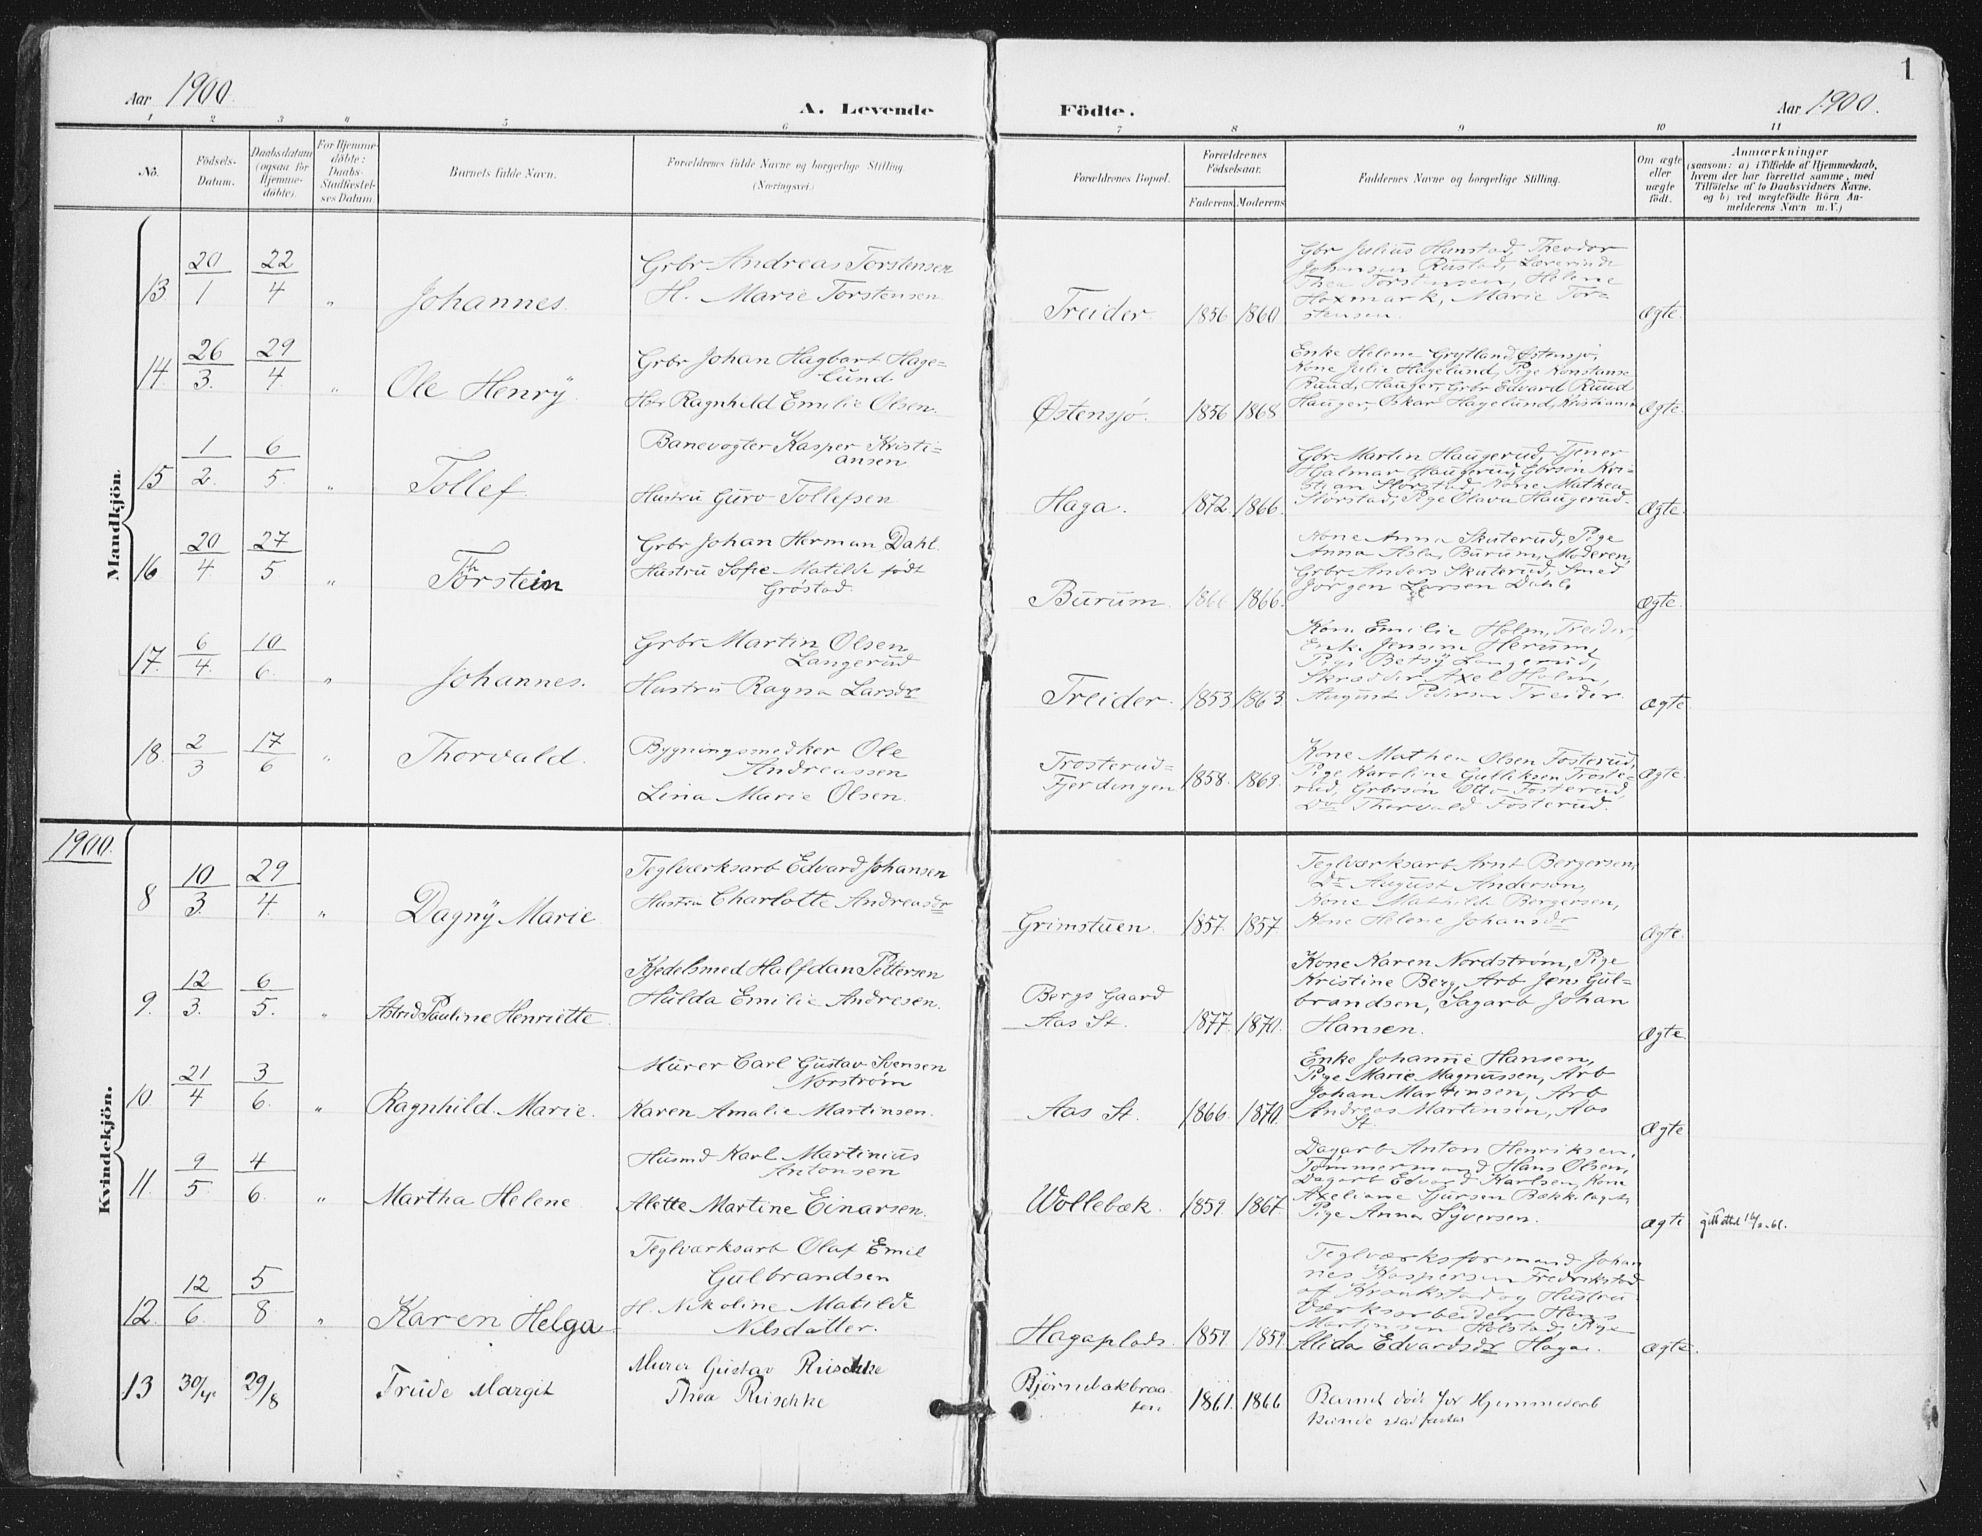 1
Aar 1900.
A. Levende Födte.
Aar 1900.
1 2 3 4 5 6 7 8 9 10 11
No.
Födsels-
Datum.
Daabsdatum
(ogsaa for
Hjemme-
döbte).
For Hjemme-
döbte:
Daabs-
Stadfæstel-
ses Datum.
Barnets fulde Navn.
Forældrenes fulde Navne og borgerlige Stilling.
(Næringsvei.)
Forældrenes Bopæl.
Forældrenes
Födselsaar.
Faderens. Moderens.
Faddernes Navne og borgerlige Stilling.
Om ægte
eller
uægte
födt.
Anmærkninger
(saasom: a) i Tilfælde af Hjemmedaab,
hvem der har forrettet samme, med
Tilföielse af to Daabsvidners Navne.
og b) ved uægtefödte Börn An-
melderens Navn m. V.)
Mandkjön.
13 20/1 22/4 " Johannes.
Grbr Andreas Torstensen
H. Marie Torstensen.
Treider 1856 1860
Gbr Julius Hynstad, Theodor
Johansen Rustad, Lærerinde
Thea Torstensen, Helene
Hoxmark, Marie Tor-
stensen.
ægte.
14. 26/3. 29/4. " Ole Henrÿ.
Grbr Johan Hagbart Hage-
lund
Hu. Ragnhild Emilie Olsen.
Østensjø. 1856 1868
Enke Helene Grytland, Østensjø,
Kone Julie Hagelund, Pige Konstanse
Ruud, Hauger, Grbr Edvard Ruud
Hauger, Oskar Hagelund, Kristiania
Ægte.
15 1/2. 6/5. " Tollef.
Banevogter Kasper Kristi-
ansen
Hustru Guro Tollefsen
Haga. 1872. 1866.
Gbr Martin Haugerud, Tjener
Hjalmar Haugerud, Gbrsøn Kri-
stian Storstad, Kone Mathea
Storstad, Pige Olava Haugerud.
Ægte.
16 20/4 27/5 " Thorstein
Grbr Johan Herman Dahl.
Hustru Sofie Matilde født
Grøstad.
Burum. 1866 1866.
Kone Anna Skuterud, Pige
Anna Asla, Burum, Moderen,
Grbr Anders Skuterud, Smed
Jørgen Larsen Dahl.
ægte.
17. 6/4. 10/6. " Johannes.
Grbr Martin Olsen
Langerud
Hustru Ragna Larsdr
Treider. 1853 1863.
Kone Emilie Holm, Treider,
Enke Jensine Herum,
Pige Betsÿ Langerud,
Skrædder Axel Holm,
August Pedersen Treider.
ægte.
18. 2/3 17/6 " Thorvald.
Bygningssnedker Ole
Andreassen
Lina Marie Olsen.
Trosterud-
Fjerdingen 1858. 1869.
Kone Mathea Olsen Fosterud,
Pige Karoline Gulliksen Troste-
rud, Grbrsøn Otto Fosterud,
Do Thorvald Fosterud.
Ægte.
1900.
Kvindekjön.
8 10/3. 29/4. " Dagnÿ Marie
Teglværksarb Edvard Johansen
Hustru Charlotte Andreasdr
Grimstuen. 1857. 1857
Teglværksarb Arnt Bergersen,
Do August Anderson,
Kone Mathilde Bergersen,
Kone Helene Johansdr
Ægte.
9. 12/3. 6/5. " Astrid Pauline Henriette.
Kjedelsmed Halfdan Pettersen
Hulda Emilie Andresen.
Bergs Gaard
Aas St. 1877. 1870.
Kone Karen Nordstrøm, Pige
Kristine Berg, Arb Jens Gul-
brandsen, Sagarb Johan
Hansen.
Ægte
10. 21/4 3/6. " Ragnhild Marie.
Murer Carl Gustav Svensen
Norstrøm
Karen Amalie Martinsen.
Aas St. 1866. 1870.
Enke Johanne Hansen,
Pige Marie Magnussen, Arb
Johan Martinsen, Arb
Andreas Martinsen, Aas
St.
Ægte
11. 9/5. 4/6. " Martha Helene
Husmd Karl Martinius
Antonsen
Alette Martine Einarsen.
Wollebæk. 1859. 1867.
Dagarb Anton Henriksen,
Tømmermand Hans Olsen,
Dagarb Edvard Karlsen, Kone
Axeliane Sjursen Bækkelaget,
Pige Anna Syversen.
ægte
12. 12/6. 5/8. " Karen Helga
Teglværksarb Olaf Emil
Gulbrandsen
H. Nikoline Matilde
Nilsdatter.
Hagaplads. 1859. 1859
Teglværksformand Johan
nes Kaspersen Fredrikstad
og Hustru
Værksarbeider Hans
Martinsen Holstad, Pige
Alida Edvardsdr Haga.
ægte.
13 30/4 29/8 Trude Margit
Murer Gustav Rischke
Thea Rischke
Bjørnebækbraa
ten 1861. 1866
Barnet døde før Hjemmedaab
kunde stadfæstes